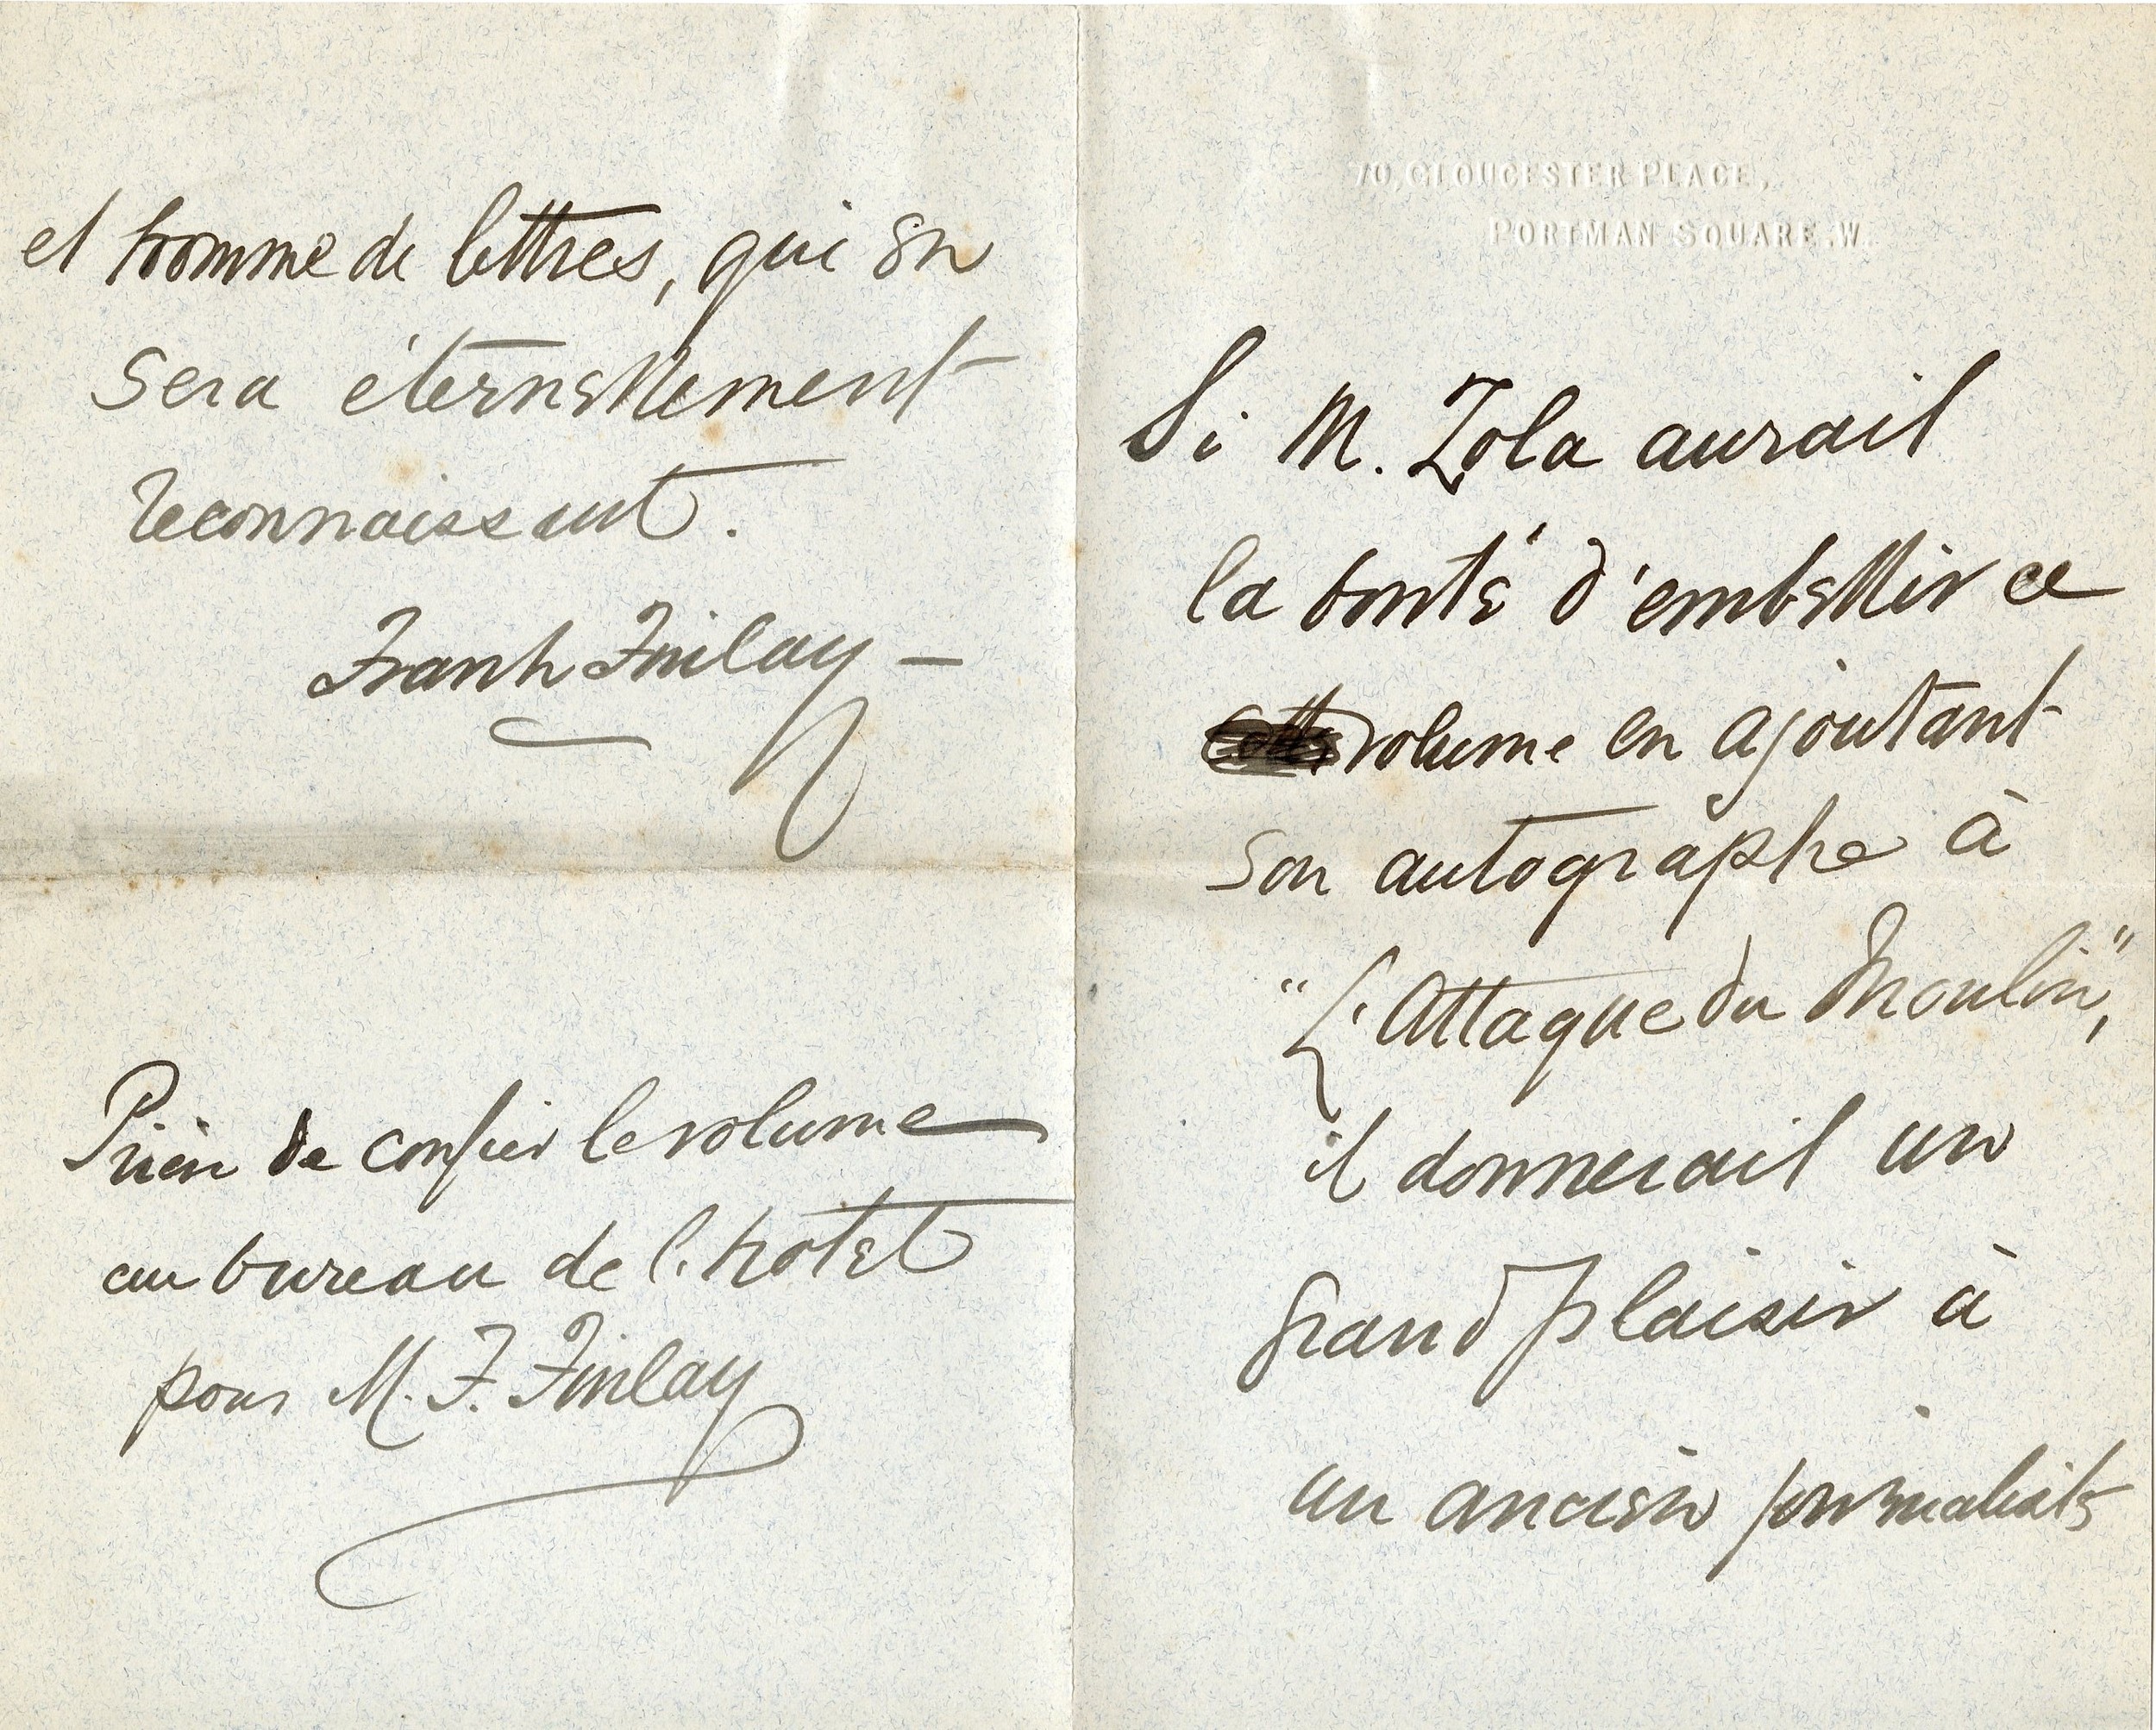 70, GLOUCESTER PLACE,
PORTMAN SQUARE. W.
Si M. Zola aurait
la bonté d'embellir ce
volume en ajoutant
son autographe à
"L'Attaque du Moulin",
il donnerait un
grand plaisir à
un ancien journaliste
et homme de lettres, qui en
sera éternellement
reconnaissant.
Frank Finlay —
Prière de confier le volume
au bureau de l'hotel
pour M. F. Finlay